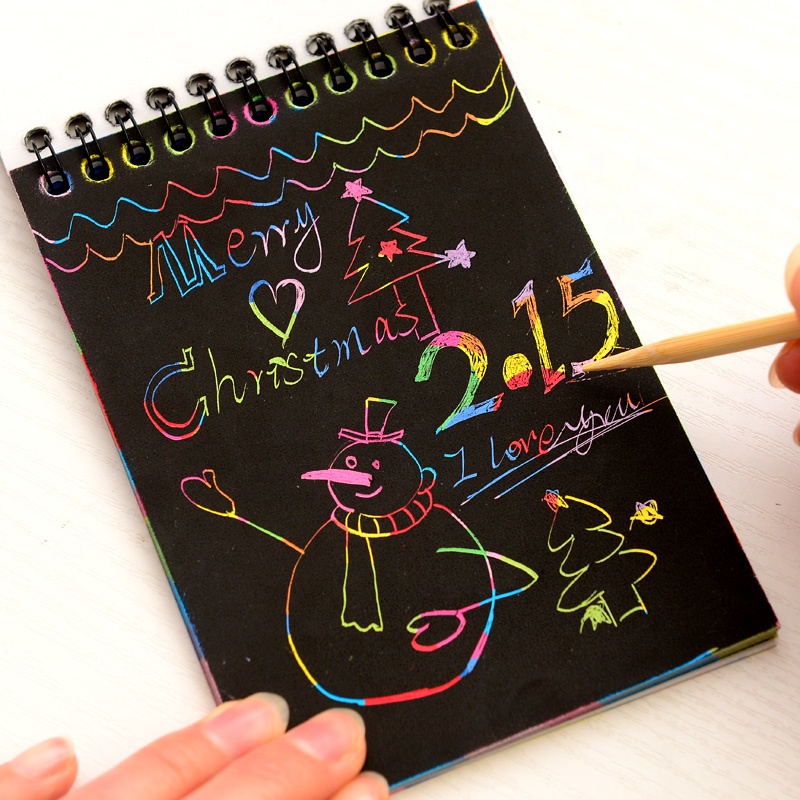 Merry
Christmas
2.15
I love you